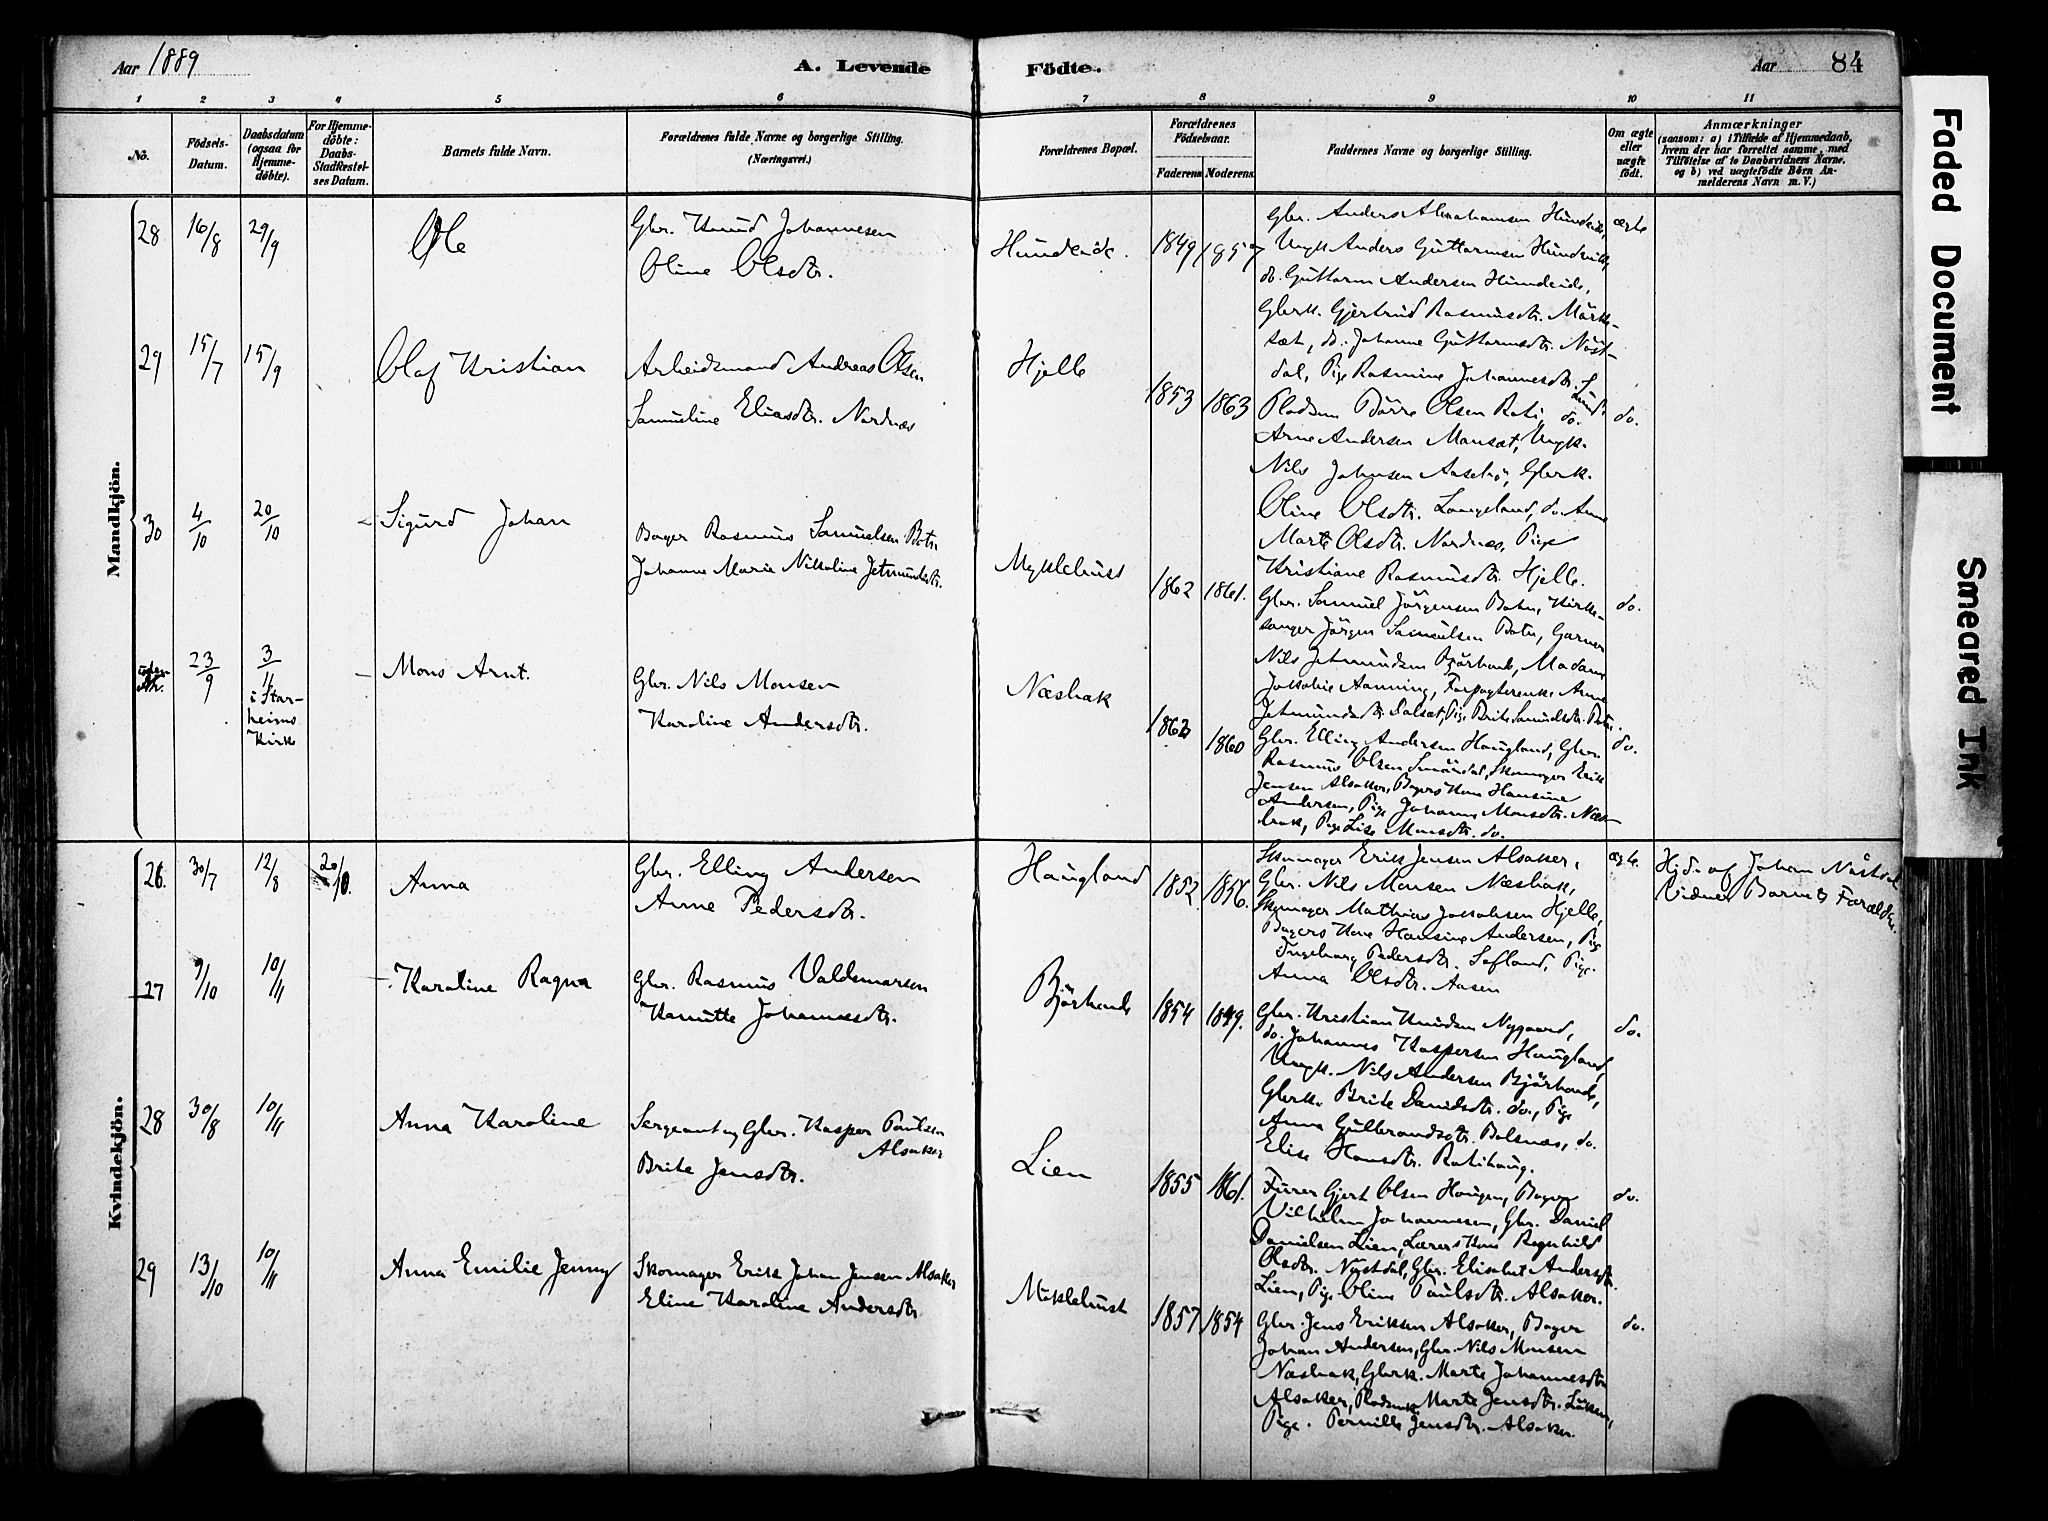 Aar 1889
A. Levende Födte.
Aar 84
1 2 3 4 5 6 7 8 9 10 11
No.
Födsels-
Datum.
Daabsdatum
(ogsaa for
Hjemme-
döbte).
For Hjemme-
döbte:
Daabs-
Stadfæstel-
ses Datum.
Barnets fulde Navn.
Forældrenes fulde Navne og borgerlige Stilling.
(Næringsvei.)
Forældrenes Bopæl.
Forældrenes
Födselsaar.
Faderens Moderens
Faddernes Navne og borgerlige Stilling.
Om ægte
eller
uægte
födt.
Anmærkninger
(saasom: a) i Tilfælde af Hjemmedaab,
hvem der har forrettet samme, med
Tilföielse af to Daabsvidners Navne.
og b) ved uægtefödte Börn An-
melderens Navn m. V.)
Mandkjön.
28 16/8 29/9 Ole
Gbr. Knud Johannesen
Oline Olsdtr.
Hundeide.
1849 1857
Gbr. Anders Abrahamsen Hundeide,
Ungk. Anders Guttormsen Hundeide,
do. Guttorm Andersen Hundeide,
Gbrk. Gjertrud Rasmusdtr. Mörk-
sæt, do. Johanne Guttormsdtr. Nöst-
dal, Pige Rasmine Johannesdtr.
ægte
29 15/7 15/9 Olaf Kristian
Arbeidsmand Andreas Olsen
Samueline Eliasdtr. Nordnæs
Hjelle
1853 1863
Pladsm. Börre Olsen Rati, do.
Arne Andersen Mansæt, Ungk.
Nils Johnsen Aasebö, Gbrk.
Oline Olsdtr. Langeland, do. Anne
Marte Olsdtr. Nordnæs, Pige
Kristiane Rasmusdtr. Hjelle.
do.
30 4/10 20/10 Sigurd Johan
Bager Rasmus Samuelsen Botn
Johanne Marie Nikoline Jetmundsdtr.
Myklebust
1862 1861.
Gbr. Samuel Jörgensen Botn, Kirke-
sanger Jörgen Samuelsen Botn, Garver
Nils Jetmundsen Bjørhovde, Madam
Jakobie Aanning, Forpagterenke Anne
Jetmundsdtr. Dalsæt, Pige Brite Samuelsdtr. Botn.
do.
uden
Nr. 23/9 3/11
i Star-
heims
Kirke
Mons Arnt.
Gbr. Nils Monsen
Karoline Andersdtr.
Næsbak
1863 1860
Gbr. Elling Andersen Haugland, Gbr.
Rasmus Olsen Smördal, Skomager Erik
Jensen Alsaker, Bagers Kone Hansine
Andersen, Pige Johanne Monsdtr. Næs-
bak, Pige Lise Monsdtr. do.
do.
Kvindekjön.
26. 30/7 12/8 20/10. Anna
Gbr. Elling Andersen
Anne Pedersdtr.
Haugland
1852 1856.
Skomager Erik Jensen Alsaker,
Gbr. Nils Monsen Næsbak,
Skomager Mathias Jakobsen Hjelle,
Bagers Kone Hansine Andersen, Pige
Ingeborg Pedersdtr. Lefland, Pige
Anna Olsdtr. Aasen
ægte.
Hjd. af Johan Nåstdal
Vidner Barnets Forældre.
27 9/10 10/11 Karoline Ragna
Gbr. Rasmus Valdemarsen
Kanutte Johannesdtr.
Bjørhovde
1854 1849.
Gbr. Kristian Knudsen Nygaard,
do. Johannes Kaspersen Haugland,
Ungk. Nils Andersen Bjørhovde,
Gbrk. Brite Davidsdtr. do., Pige
Anna Gulbrandsdtr. Bolsnæs, do.
Elise Hansdtr. Ratihaug.
do.
28 30/8 10/11 Anna Karoline
Sergeant og Gbr. Kasper Paulsen
Alsaker
Brite Jensdtr.
Lien
1855 1861.
Furer Gjert Olsen Haugen, Bager
Vilhelm Johannesen, Gbr. Daniel
Danielsen Lien, Lærers Kone Ragnhild
Olsdtr. Nåstdal, Gbr. Elisabet Andersdtr.
Lien, Pige Oline Paulsdtr. Alsaker.
do.
29 13/10 10/11 Anna Emilie Jenny
Skomager Erik Johan Jensen Alsaker
Eline Karoline Andersdtr.
Myklebust
1857 1854
Gbr. Jens Eriksen Alsaker, Bager
Johan Andersen, Gbr. Nils Monsen
Næsbak, Gbrk. Marte Johannesdtr.
Alsaker, Pladsmk. Marte Jensdtr. Löken,
Pige Pernille Jensdtr. Alsaker.
do.
Faded Document
Smeared Ink